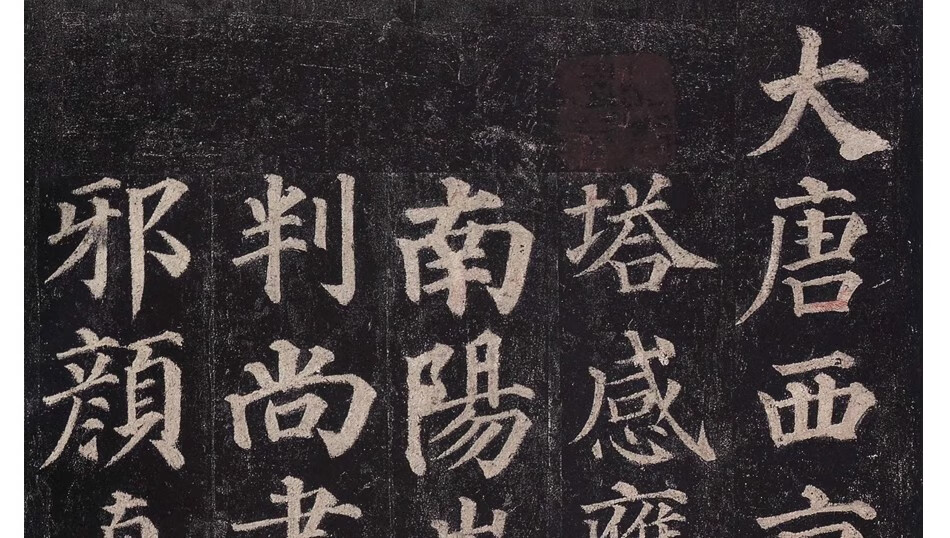 大唐西
塔感
南陽
判尚
邪顏